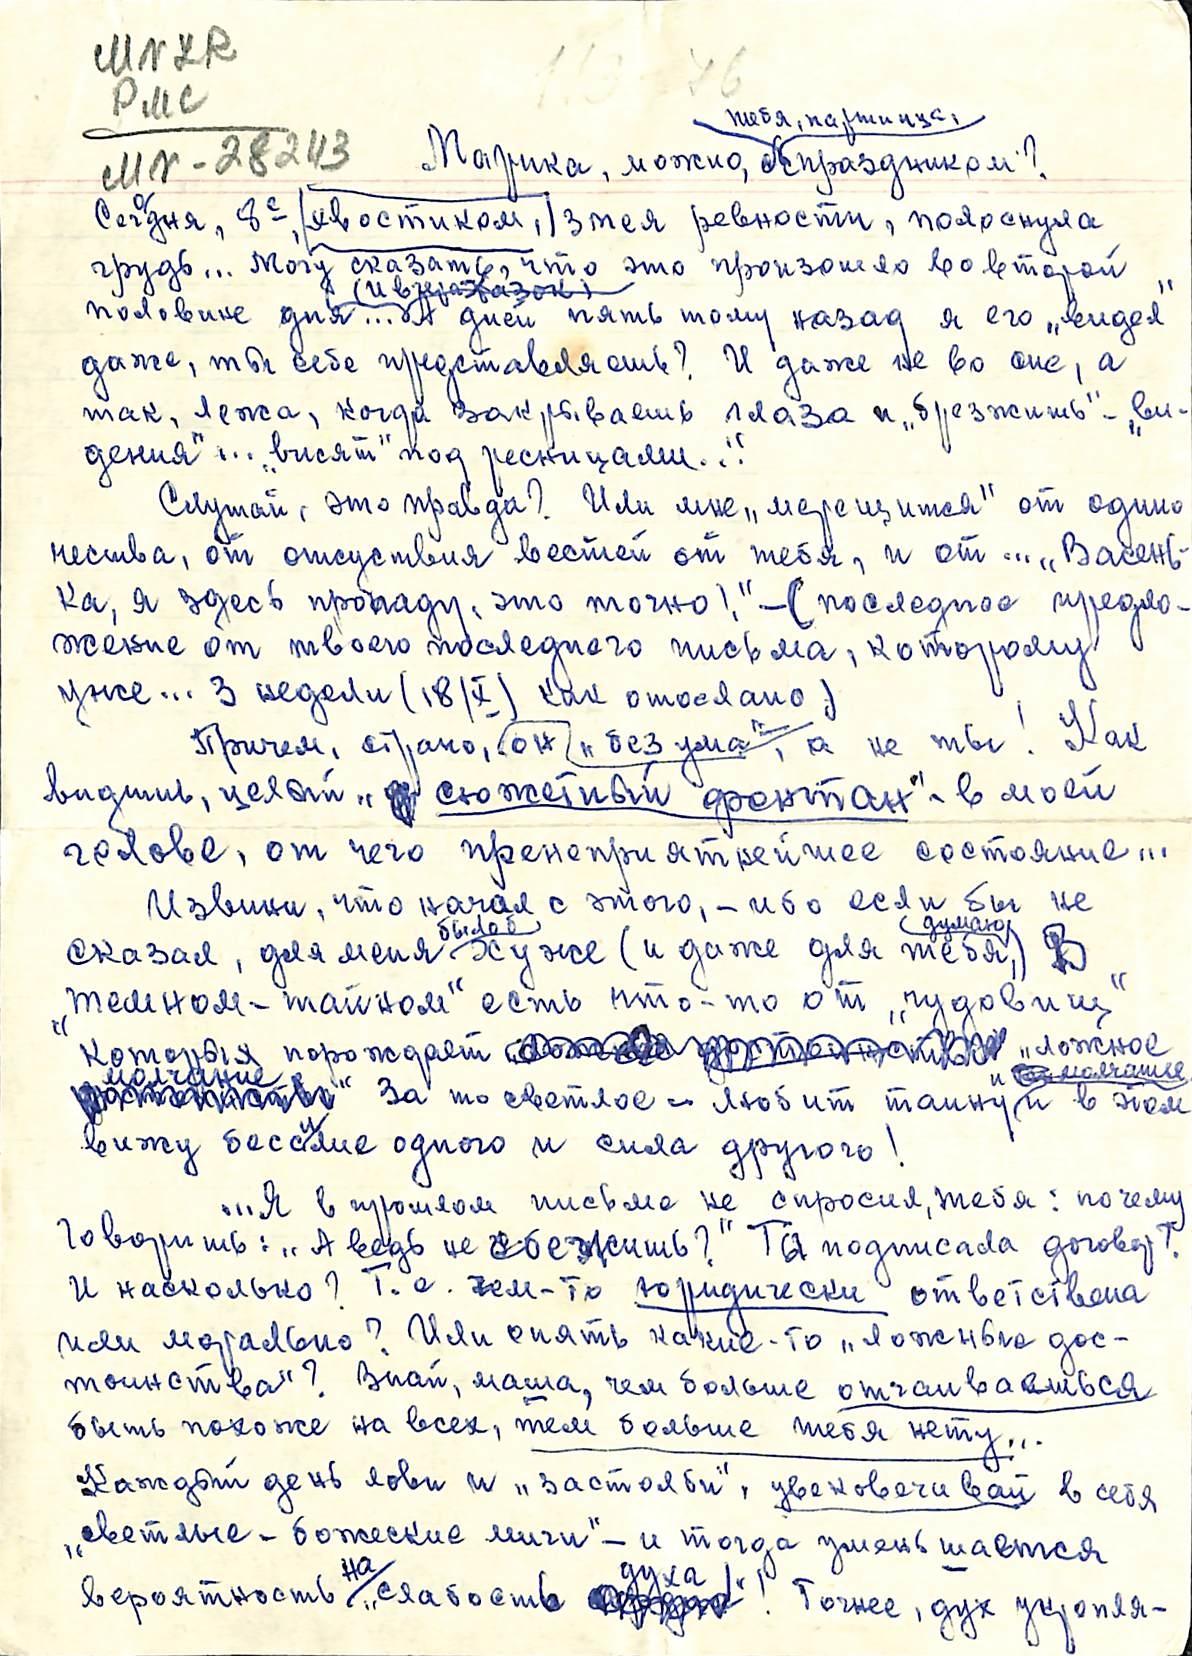 MNKR
РМС
MN-28243
тебя, партийца,
Марика, можно, с праздником?
Сегодня, 8е, (хвостиком,) змея ревности, полоснула
грудь... Могу сказать, что это произошло во второй
половине дня... А дней пять тому назад я его „видел"
даже, ты себе представляешь? И даже не во сне, а
так, лежа, когда закрываешь глаза и „брезжить" – „ви-
дения"... „висят" под ресницами...
Слушай, это правда? Или мне „мерещится" от одино
чества, от отсутствия вестей от тебя, и от... „Васень-
ка, я здесь пропаду, это точно!," – (последнее предло-
жение от твоего последнего письма, которому
уже... 3 недели (18/X) как отослано)
Причем, страно, он „без ума", а не ты! Как
видишь, целый „сюжетный фонтан" – в моей
голове, от чего пренеприятнейшее состояние...
Извини, что начал с этого, – ибо если бы не
сказал, для меня было б хуже (и даже для тебя, думаю) В
„темном – тайном" есть что-то от „чудовищ"
"которыя порождает „ложное
молчание" За то светлое – любит таину и молчание и в этом
вижу бессилие одного и сила другого!
...Я в прошлом письме не спросил, тебя: почему
говоришь: „А ведь не сбежишь?" Ты подписала договор?
И насколько? Т.е. чем-то юридически ответствена
или морально? Или опять какие-то „ложные дос-
тоинства"? Знай, маша, чем больше отчаиваешься
быть похоже на всех, тем больше тебя нету...
Каждый день лови и „застолби", увековечивай в себя
„светлые – божеские миги" – и тогда уменьшается
вероятность на „слабость духа"! Точнее, дух укропля-